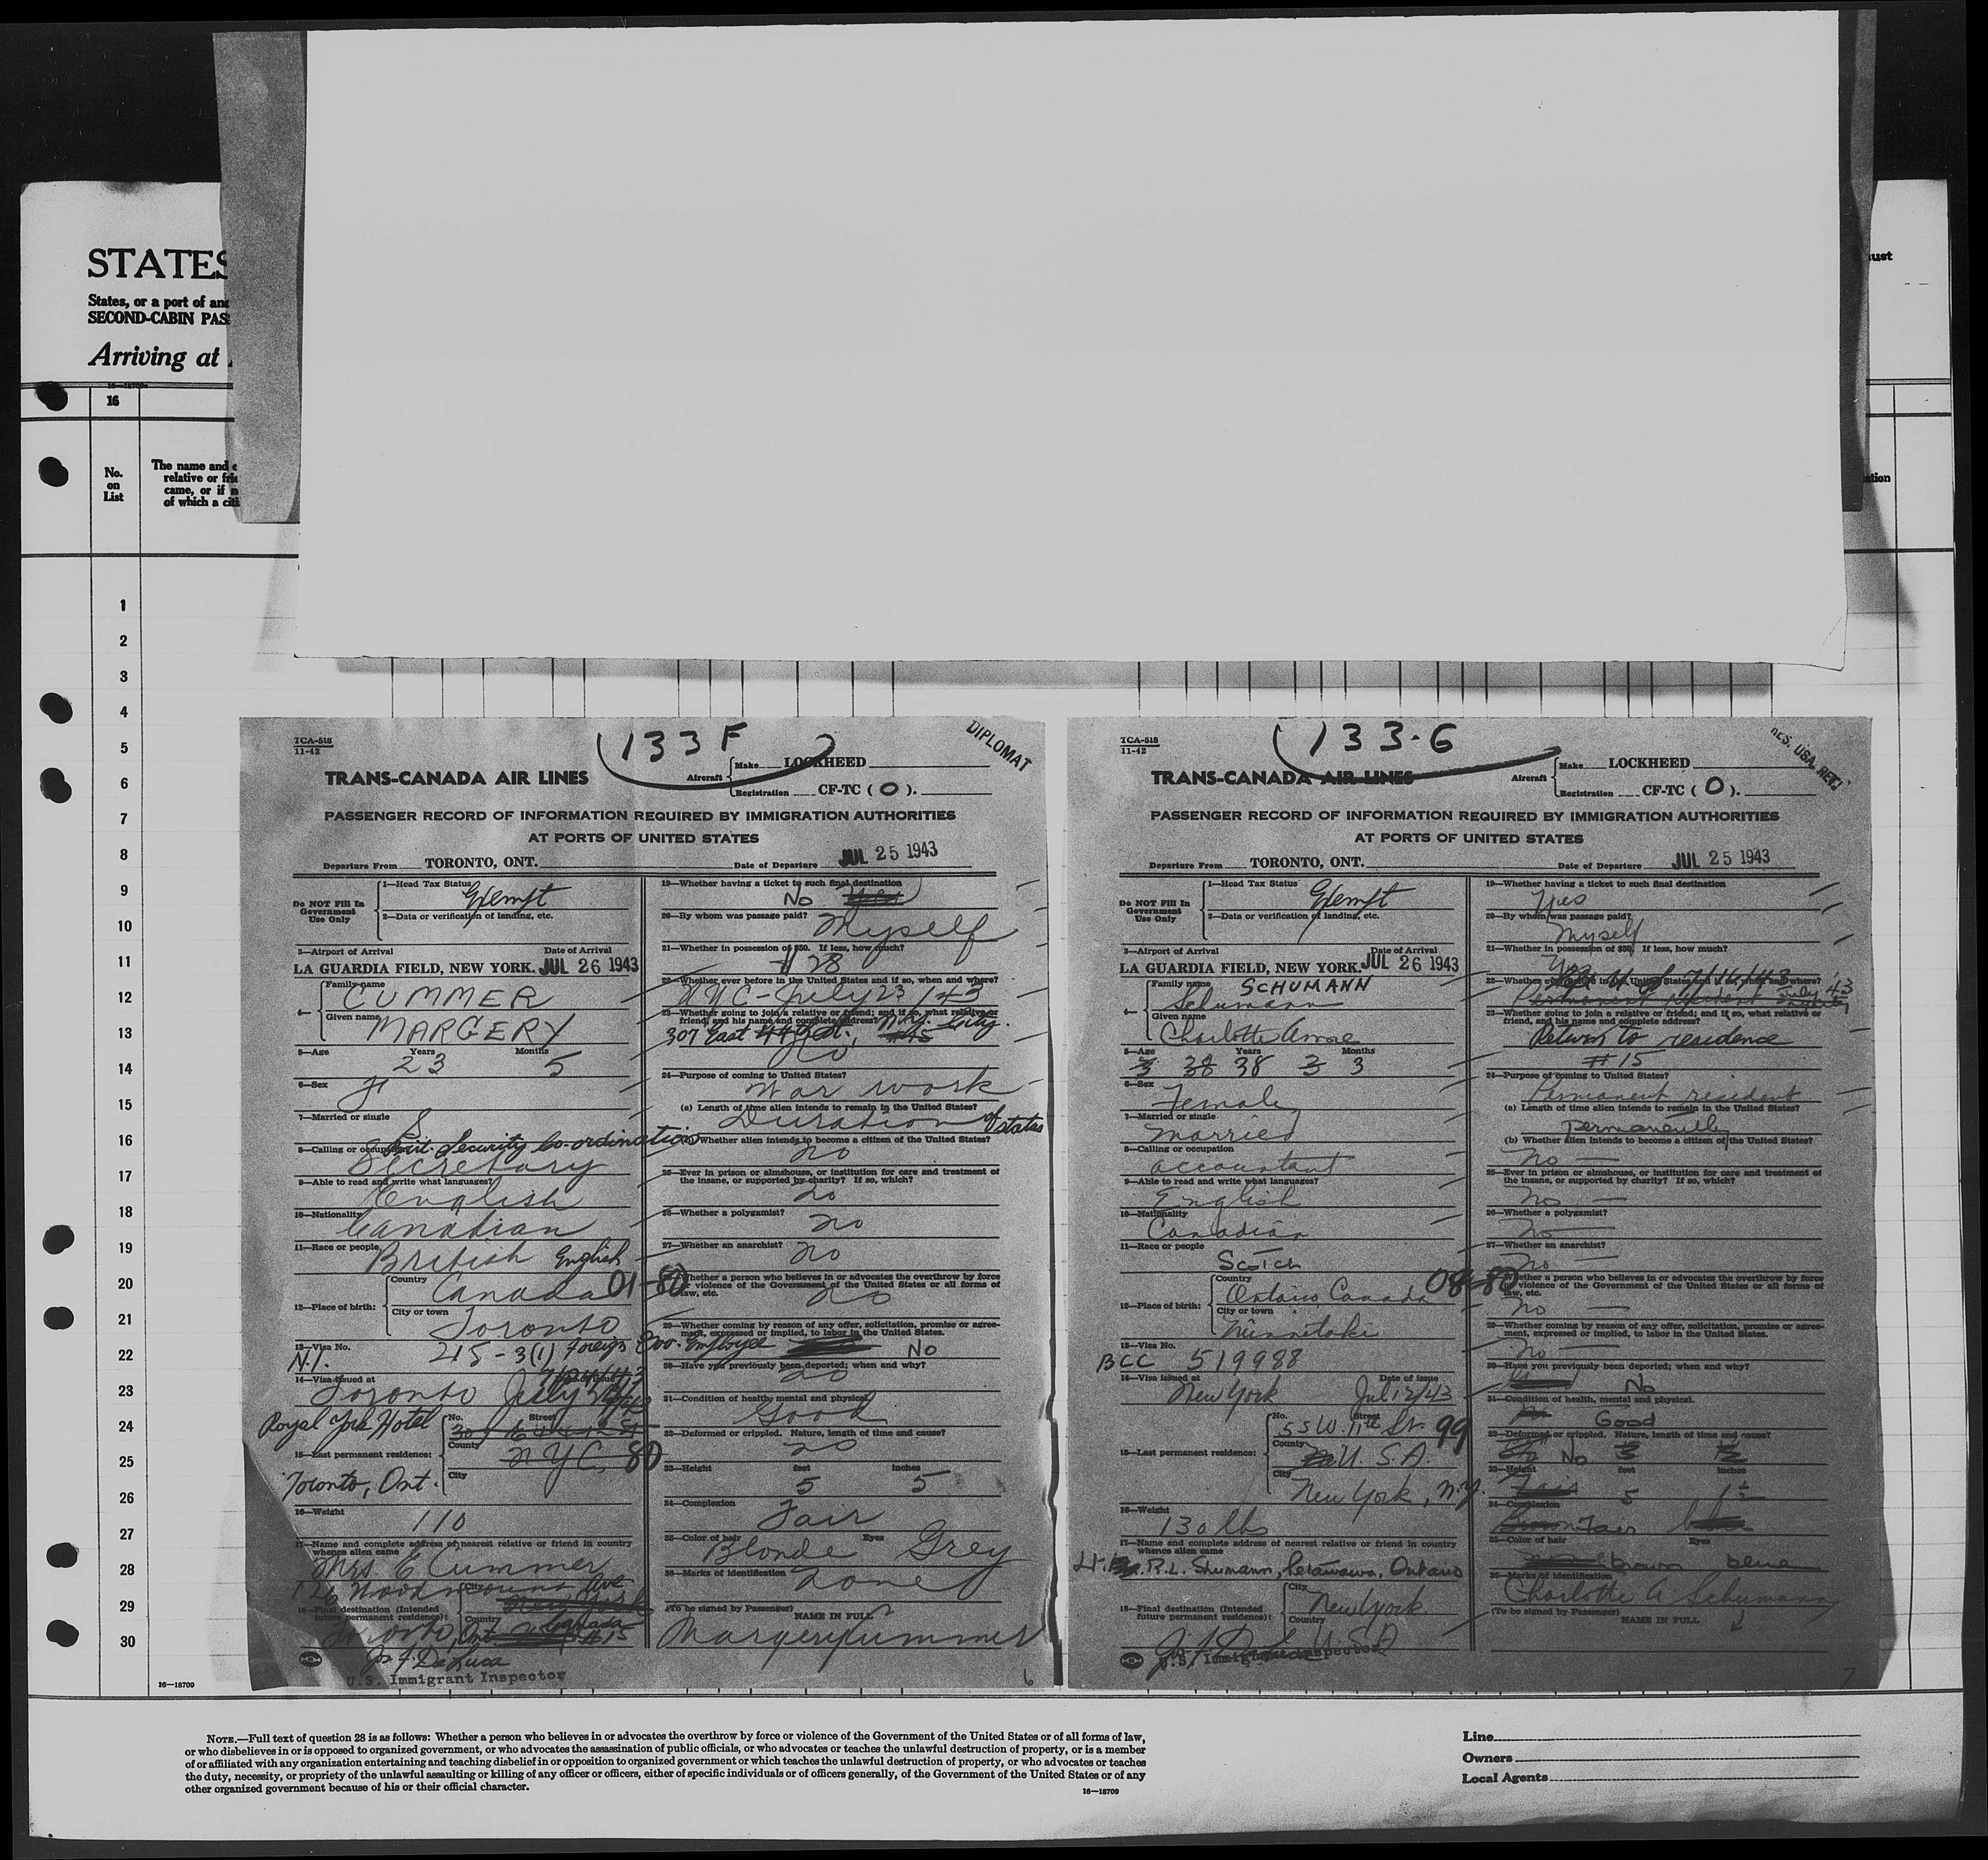 STATES
States, or a port of
SECOND-CABIN PAS
Arriving at
16
No.
on
List
The name and
relative or
came, or if
of which a
ust
1
2
3
4
5
6
7
8
9
10
11
12
13
14
15
16
17
18
19
20
21
22
23
24
25
26
27
28
29
30
16—18709
TCA-518
11-42
133 F
DIPLOMAT
TRANS-CANADA AIR LINES
Aircraft
Make LOCKHEED
Registration CF-TC ( O ).
PASSENGER RECORD OF INFORMATION REQUIRED BY IMMIGRATION AUTHORITIES
AT PORTS OF UNITED STATES
Departure From TORONTO, ONT.
Date of Departure JUL 25 1943
Do NOT Fill In
Government
Use Only
1—Head Tax Status
Exempt
2—Data or verification of landing, etc.
3—Airport of Arrival Date of Arrival
LA GUARDIA FIELD, NEW YORK. JUL 26 1943
4—
Family name
CUMMER
Given name
MARGERY
5—Age Years Months
23 5
6—Sex
7—Married or single
S
Brit. Security Co-ordination
8—Calling or occupation
Secretary
9—Able to read and write what languages?
English
10—Nationality
Canadian
11—Race or people
British English
12—Place of birth:
Country
Canada 01-80
City or town
Toronto
13—Visa No.
N.I. 215-3(1) Foreign Gov. Employee
14—Visa issued at
Toronto July
Royal York Hotel
No. Street
15—Last permanent residence:
County
NYC, 80
City
Toronto, Ont.
16—Weight
110
17—Name and complete address of nearest relative or friend in country
whence alien came
Mrs. E Cummer
Ave
18—Final destination (Intended
future permanent residence):
City
Country
Toronto Ont Canada
#15
De Luca
U.S. Immigrant Inspector
19—Whether having a ticket to such final destination
No
20—By whom was passage paid?
Myself
21—Whether in possession of $50. If less, how much?
$28
22—Whether ever before in the United States and if so, when and where?
NYC - July 23/43
23—Whether going to join a relative or friend; and if so, what relative or
friend, and his name and complete address?
307 East 44th St., N.Y. City.
No
24—Purpose of coming to United States?
War work
(a) Length of time alien intends to remain in the United States?
Duration of status
(b) Whether alien intends to become a citizen of the United States?
no
25—Ever in prison or almshouse, or institution for care and treatment of
the insane, or supported by charity? If so, which?
no
26—Whether a polygamist?
no
27—Whether an anarchist?
no
28—Whether a person who believes in or advocates the overthrow by force
or violence of the Government of the United States or all forms of
law, etc.
no
29—Whether coming by reason of any offer, solicitation, promise or agree-
ment, expressed or implied, to labor in the United States.
No
30—Have you previously been deported; when and why?
no
31—Condition of health, mental and physical.
Good
32—Deformed or crippled. Nature, length of time and cause?
no
33—Height feet inches
5 5
34—Complexion
Fair
35—Color of hair Eyes
Blonde Grey
36—Marks of identification
none
(To be signed by Passenger) NAME IN FULL
Margery Cummer
6
TCA-518
11-42
133-G
RES. USA. RET.
TRANS-CANADA AIR LINES
Aircraft
Make LOCKHEED
Registration CF-TC ( O ).
PASSENGER RECORD OF INFORMATION REQUIRED BY IMMIGRATION AUTHORITIES
AT PORTS OF UNITED STATES
Departure From TORONTO, ONT.
Date of Departure JUL 25 1943
Do NOT Fill In
Government
Use Only
1—Head Tax Status
Exempt
2—Data or verification of landing, etc.
3—Airport of Arrival Date of Arrival
LA GUARDIA FIELD, NEW YORK. JUL 26 1943
4—
Family name SCHUMANN
Schumann
Given name
Charlotte
5—Age Years Months
38 3
6—Sex
Female
7—Married or single
Married
8—Calling or occupation
accountant
9—Able to read and write what languages?
English
10—Nationality
Canadian
11—Race or people
Scotch
12—Place of birth:
Country
Ontario, Canada 08-80
City or town
Minnitaki
13—Visa No.
BCC 519988
14—Visa issued at Date of issue
New York Jul 12/43
15—Last permanent residence:
No. Street
55 W. 11th St. 99
County
U.S.A.
City
New York, N.Y.
16—Weight
130 lbs
17—Name and complete address of nearest relative or friend in country
whence alien came
R.L. Shumann, Petawawa, Ontario
18—Final destination (Intended
future permanent residence):
City
New York
Country
U.S.A
U.S. Immigrant Inspector
19—Whether having a ticket to such final destination
Yes
20—By whom was passage paid?
Myself
21—Whether in possession of $50. If less, how much?
Yes
22—Whether ever before in the United States and if so, when and where?
Permanent resident July '43
23—Whether going to join a relative or friend; and if so, what relative or
friend, and his name and complete address?
Return to residence
#15
24—Purpose of coming to United States?
Permanent resident
(a) Length of time alien intends to remain in the United States?
Permanently
(b) Whether alien intends to become a citizen of the United States?
No —
25—Ever in prison or almshouse, or institution for care and treatment of
the insane, or supported by charity? If so, which?
No —
26—Whether a polygamist?
No —
27—Whether an anarchist?
No —
28—Whether a person who believes in or advocates the overthrow by force
or violence of the Government of the United States or all forms of
law, etc.
No —
29—Whether coming by reason of any offer, solicitation, promise or agree-
ment, expressed or implied, to labor in the United States.
No —
30—Have you previously been deported; when and why?
No
31—Condition of health, mental and physical.
Good
32—Deformed or crippled. Nature, length of time and cause?
No
33—Height feet inches
5 1½
34—Complexion
Fair
35—Color of hair Eyes
brown blue
36—Marks of identification
Charlotte A Schumann
(To be signed by Passenger) NAME IN FULL
7
NOTE.—Full text of question 28 is as follows: Whether a person who believes in or advocates the overthrow by force or violence of the Government of the United States or of all forms of law,
or who disbelieves in or is opposed to organized government, or who advocates the assassination of public officials, or who advocates or teaches the unlawful destruction of property, or is a member
of or affiliated with any organization entertaining and teaching disbelief in or opposition to organized government or which teaches the unlawful destruction of property, or who advocates or teaches
the duty, necessity, or propriety of the unlawful assaulting or killing of any officer or officers, either of specific individuals or of officers generally, of the Government of the United States or of any
other organized government because of his or their official character.
16—18709
Line
Owners
Local Agents